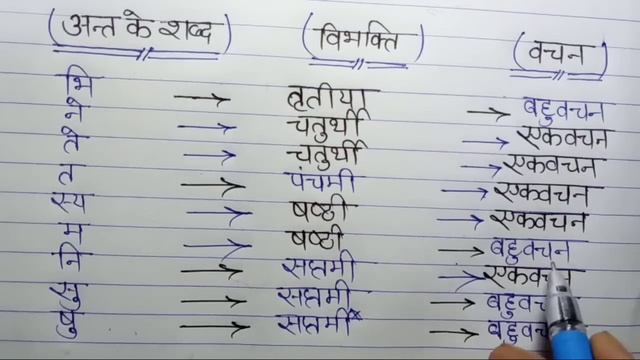 (अन्त के शब्द) (विभक्ति) (वचन)
भि → तृतीया → बहुवचन
ने → चतुर्थी → एकवचन
ते → चतुर्थी → एकवचन
त → पंचमी → एकवचन
स्य → षष्ठी → एकवचन
म → षष्ठी → बहुवचन
नि → सप्तमी → एकवचन
सु → सप्तमी →
षु → सप्तमी →